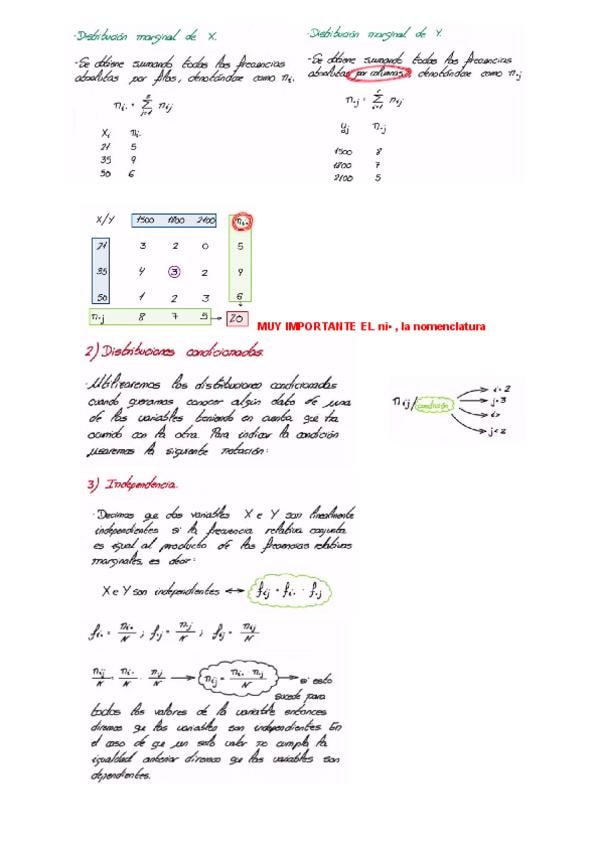 ·Distribución marginal de X.
·Se obtiene sumando todas las frecuencias
absolutas por filas, denotándose como ni.
ni. = Σ nij
j=1
Xi ni.
21 5
35 9
50 6
·Distribución marginal de Y.
·Se obtiene sumando todas las frecuencias
absolutas por columnas, denotándose como n.j
n.j = Σ nij
i=1
yj n.j
1500 8
1800 7
2100 5
X/Y 1500 1800 2100 ni.
21 3 2 0 5
35 4 3 2 9
50 1 2 3 6
n.j 8 7 5 → 20
MUY IMPORTANTE EL ni• , la nomenclatura
2) Distribuciones condicionadas.
·Utilizaremos las distribuciones condicionadas
cuando queramos conocer algún dato de una
de las variables teniendo en cuenta qué ha
ocurrido con la otra. Para indicar la condición
usaremos la siguiente notación:
nij/condición
i=2
j=3
i>
j<2
3) Independencia.
·Decimos que dos variables X e Y son linealmente
independientes si la frecuencia relativa conjunta
es igual al producto de las frecuencias relativas
marginales, es decir:
X e Y son independientes ↔ fij = fi. · f.j
fi. = ni./N ; f.j = n.j/N ; fij = nij/N
nij/N = ni./N · n.j/N → nij = ni. · n.j/N → si esto
sucede para
todos los valores de la variable entonces
diremos que las variables son independientes. En
el caso de que un solo valor no cumpla la
igualdad anterior diremos que las variables son
dependientes.